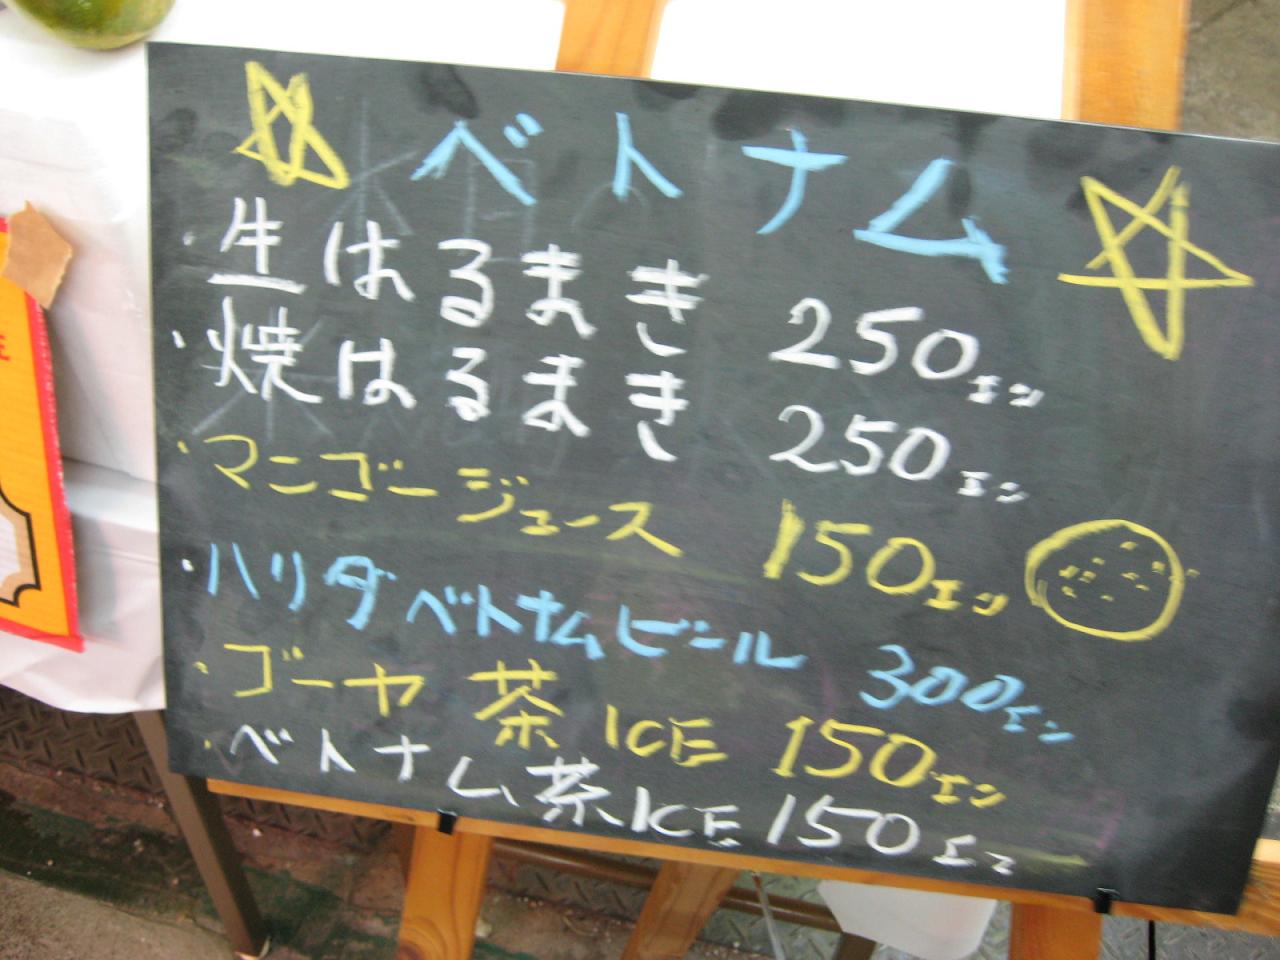 ベトナム
・生はるまき 250エン
・焼はるまき 250エン
・マンゴージュース 150エン
・ハリダベトナムビール 300エン
・ゴーヤ茶 ICE 150エン
・ベトナム茶 ICE 150エン